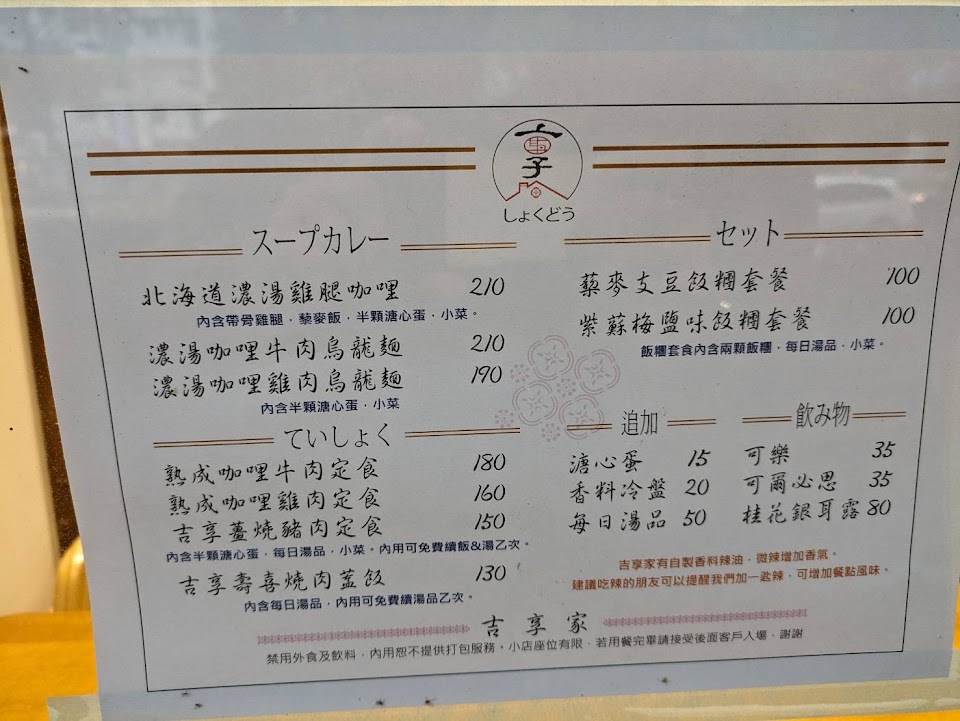 しょくどう
スープカレー
北海道濃湯雞腿咖哩 210
內含帶骨雞腿．藜麥飯．半顆溏心蛋．小菜。
濃湯咖哩牛肉烏龍麵 210
濃湯咖哩雞肉烏龍麵 190
內含半顆溏心蛋．小菜
ていしょく
熟成咖哩牛肉定食 180
熟成咖哩雞肉定食 160
吉享薑燒豬肉定食 150
內含半顆溏心蛋．每日湯品．小菜。內用可免費續飯&湯乙次。
吉享壽喜燒肉蓋飯 130
內含每日湯品．內用可免費續湯品乙次。
セット
藜麥支豆飯糰套餐 100
紫蘇梅鹽味飯糰套餐 100
飯糰套食內含兩顆飯糰．每日湯品．小菜。
追加
溏心蛋 15
香料冷盤 20
每日湯品 50
飲み物
可樂 35
可爾必思 35
桂花銀耳露 80
吉享家有自製香料辣油．微辣增加香氣。
建議吃辣的朋友可以提醒我們加一匙辣．可增加餐點風味。
吉享家
禁用外食及飲料．內用恕不提供打包服務。小店座位有限．若用餐完畢請接受後面客戶入場．謝謝